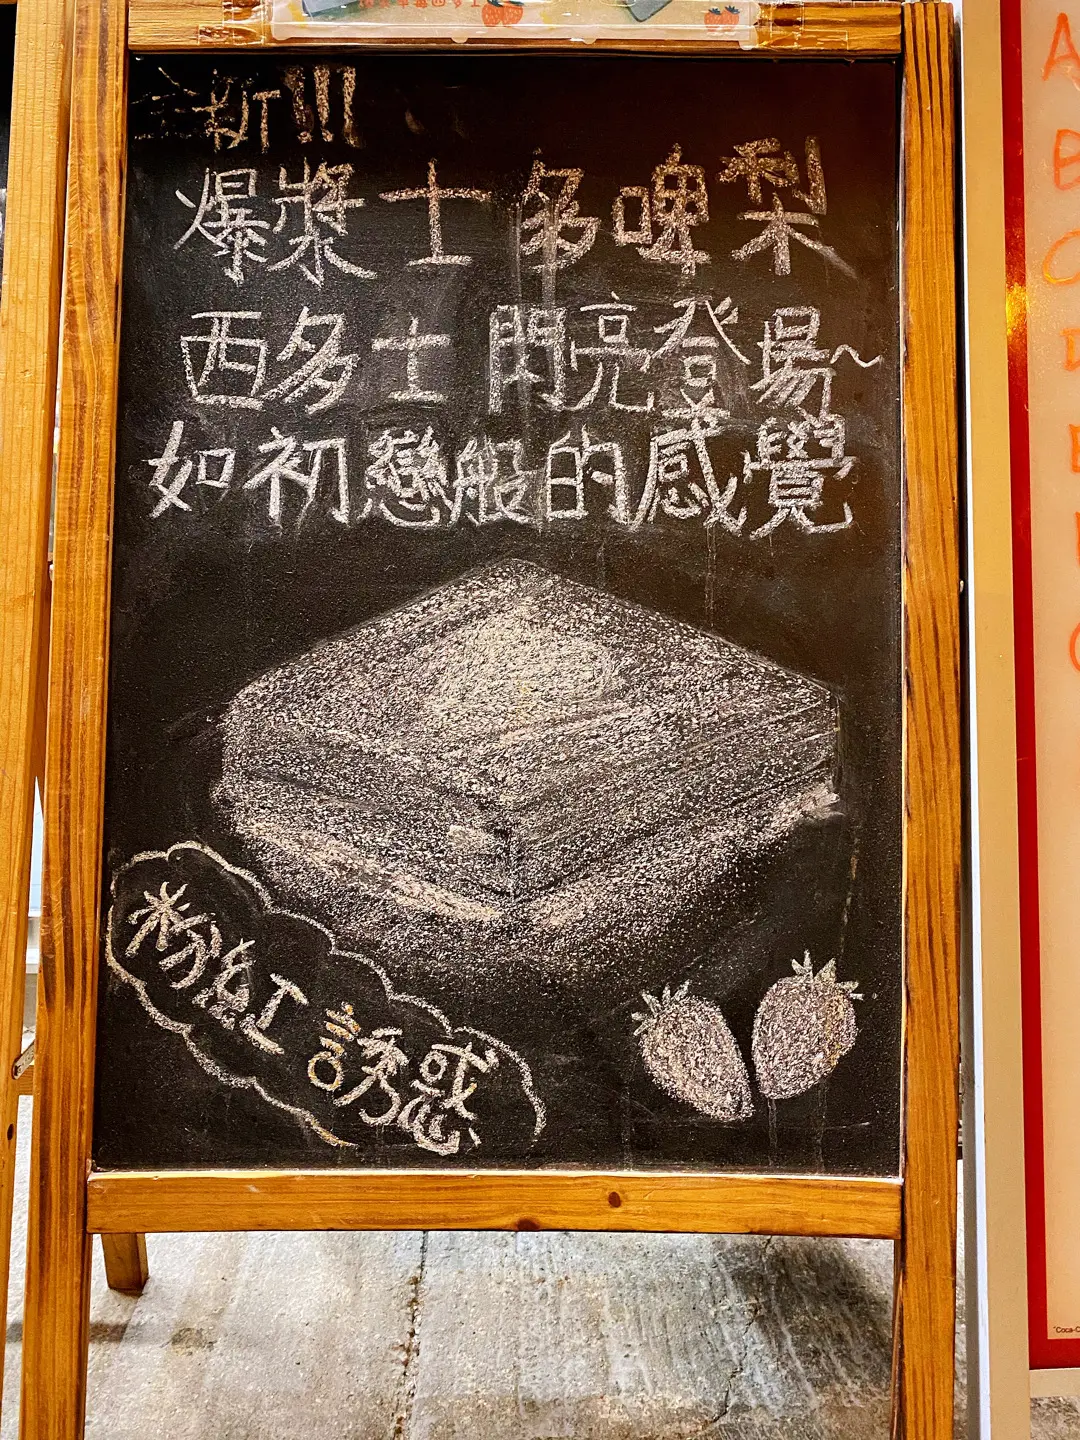 全新!!!
爆漿士多啤梨
西多士 閃亮登場~
如初戀般的感覺
粉紅誘惑
A
B
C
D
E
F
G
"Coca-C